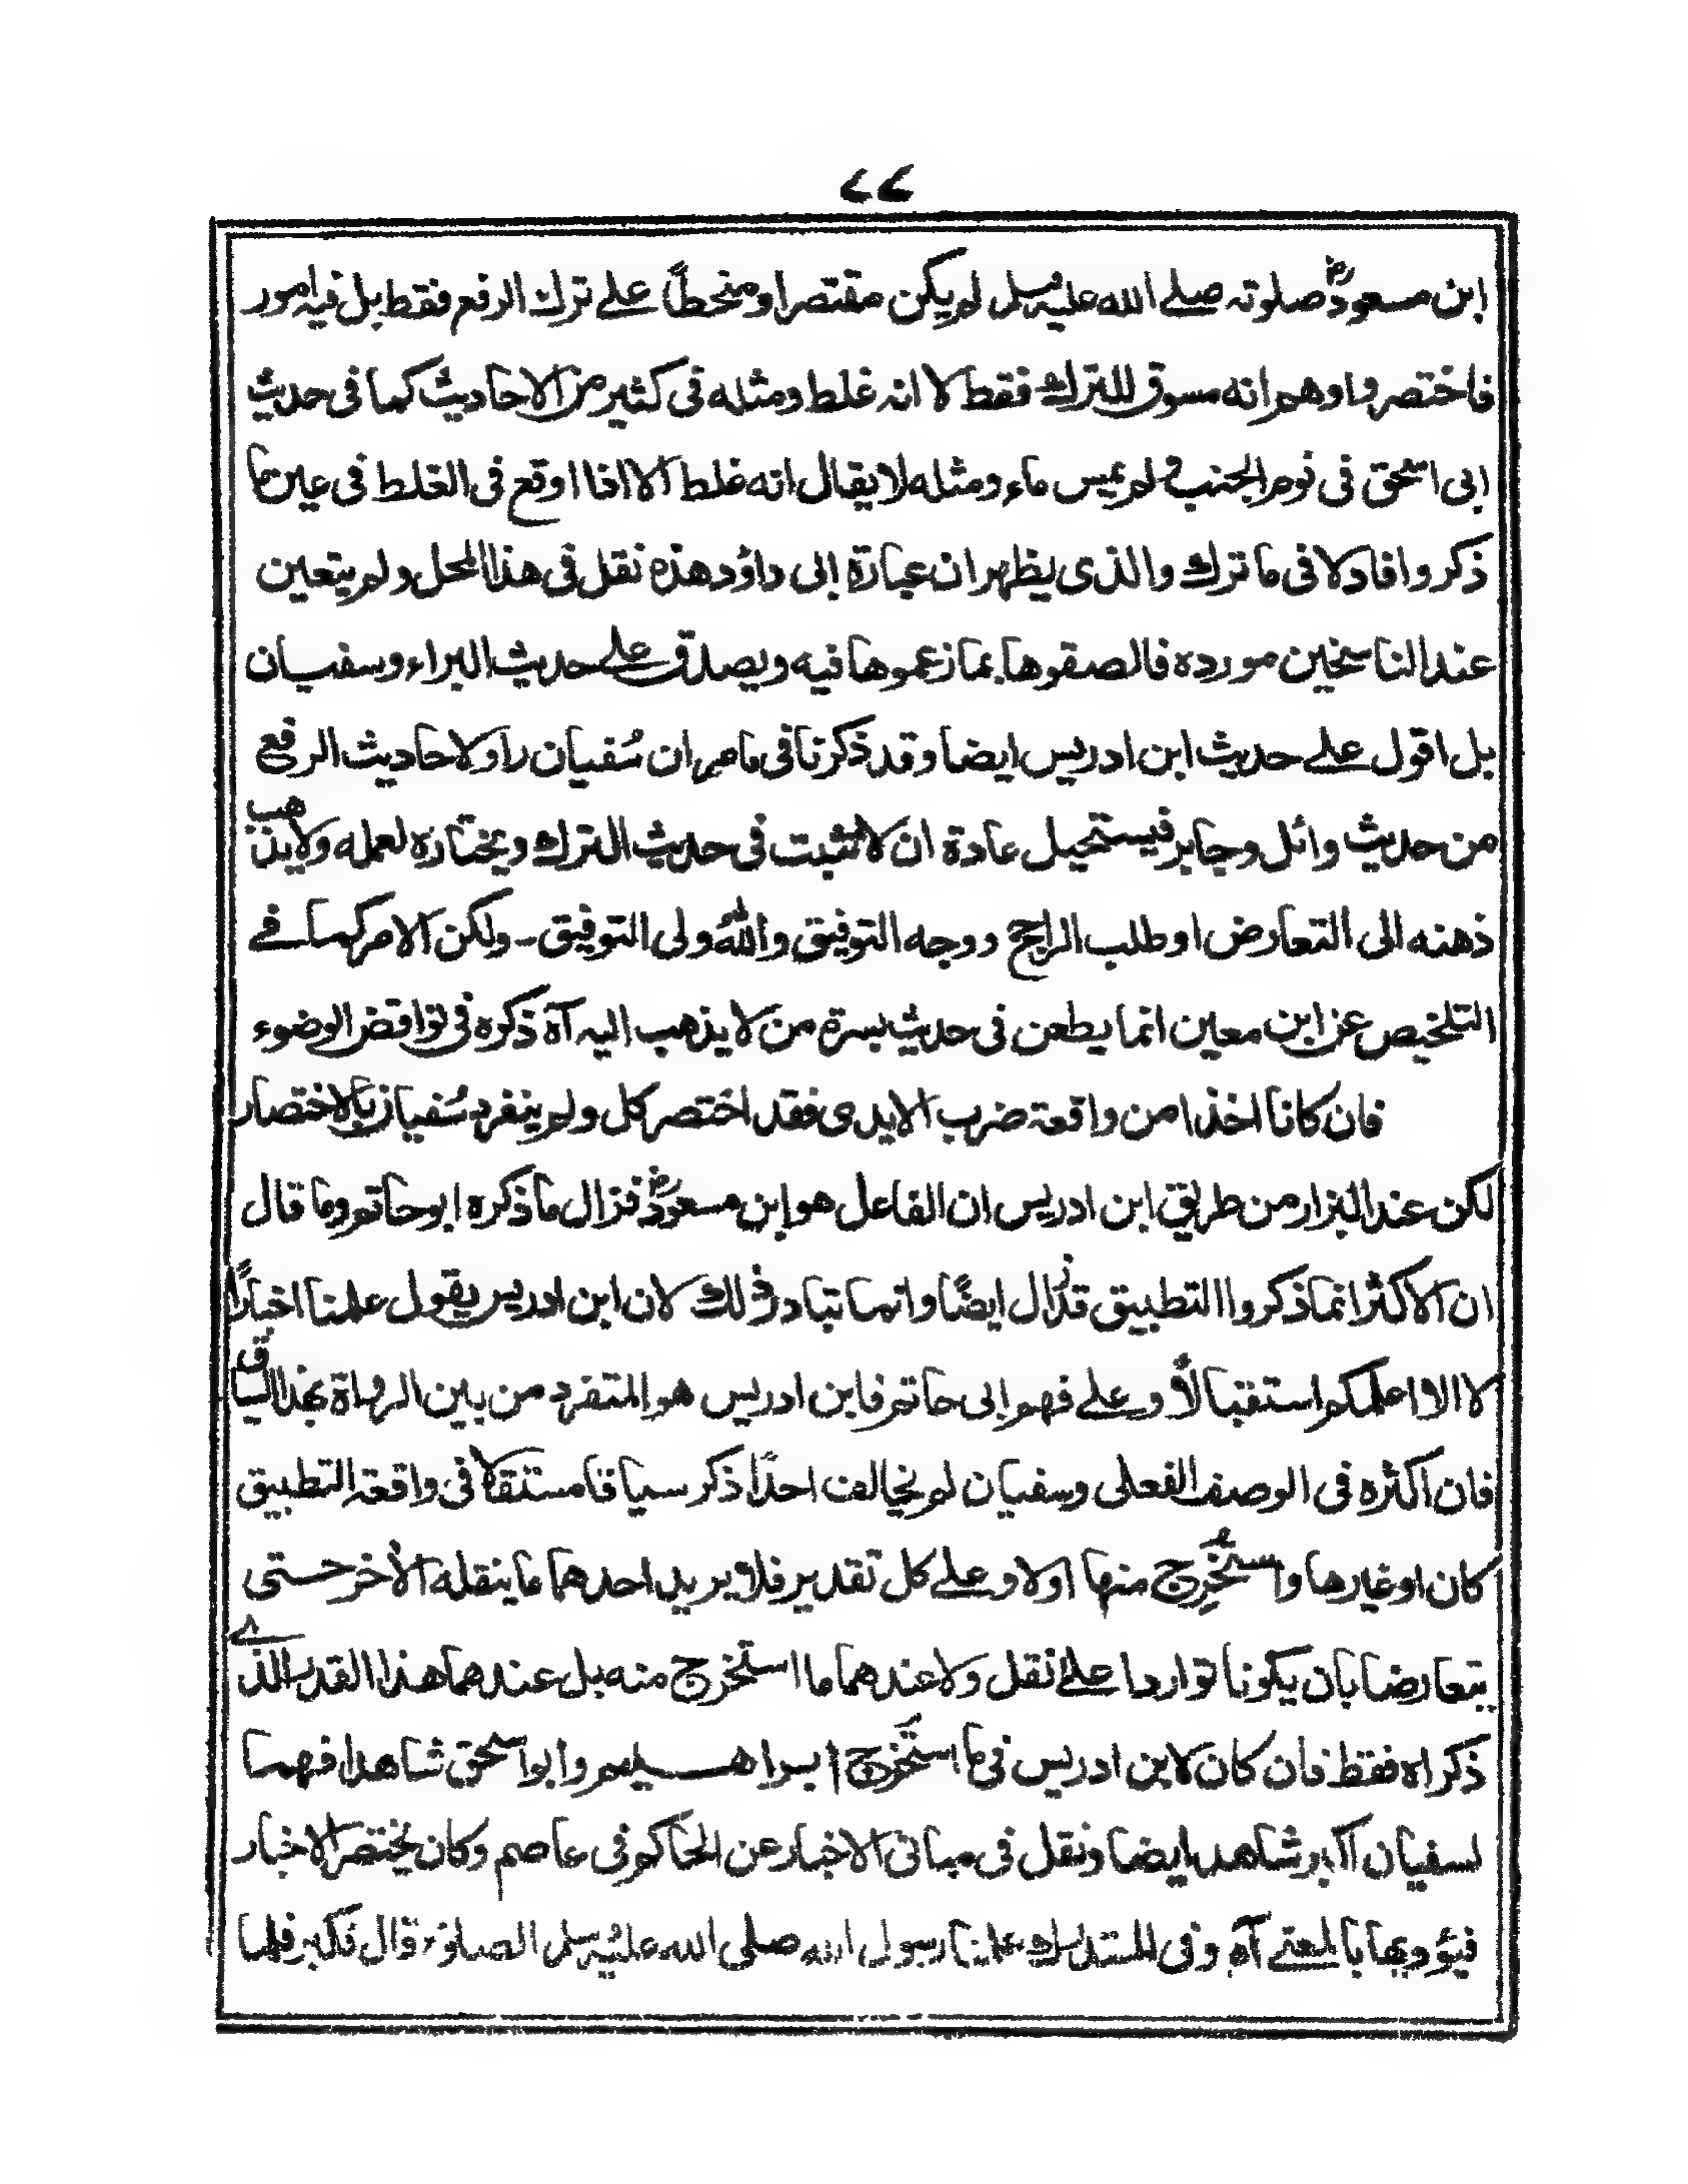 ۷۷
ابن مسعودؓ صلوته صلے الله عليه وسلم لم يكن مقتصرا ومنحطاً علے ترك الرفع فقط بل فيه امور
فاختصروا وهم انه مسوق للترك فقط لا انه غلط ومثله فى كثير من الاحاديث كما فى حديث
ابى اسحق فى نوم الجنب ولم يمس ماء ومثله لا يقال انه غلط الا اذا اوقع فى الغلط فى عين ما
ذكر وافاد لا فى ما ترك والذى يظهر ان عبارة ابى داؤد هذه نقل فى هذا المحل ولم يتعين
عند الناسخين مورده فالصقوها بما زعموها فيه ويصدق علے حديث البراء وسفيان
بل اقول علے حديث ابن ادريس ايضا وقد ذكرنا فى ما مر ان سُفيان راو لاحاديث الرفع
من حديث وائل وجابر فيستحيل عادة ان لا يثبت فى حديث الترك ويختاره لعمله ولا يذهب
ذهنه الى التعارض او طلب الراجح ووجه التوفيق والله ولى التوفيق - ولكن الامر كما فے
التلخيص عن ابن معين انما يطعن فى حديث بسرة من لا يذهب اليه آه ذكره فى نواقض الوضوء
فان كانا اخذا من واقعة ضرب الايدى فقد اختصر كل ولم ينفرد سُفيان بالاختصار
لكن عند البزار من طريق ابن ادريس ان الفاعل هو ابن مسعودؓ فزال ما ذكره ابو حاتم وما قال
ان الاكثر انما ذكروا التطبيق قد زال ايضًا وانما تبادر ذلك لان ابن ادريس يقول علمنا اخبارًا
لا الا اعلمكم استقبالاً وعلے فهم ابى حاتم فابن ادريس هو المتفرد من بين الرواة بهذا السياق
فان اكثره فى الوصف الفعلى وسفيان لم يخالف احدًا ذكر سياقا مستقلا فى واقعة التطبيق
كان او غيرها واستُخرِج منها اولا وعلے كل تقدير فلا يريد احدهما ما ينقله الاٰخر حتى
يتعارضا بان يكونا تواردا علے نقل ولا عندهما ما استخرج منه بل عندهما هذا القدر الذے
ذكراه فقط فان كان لابن ادريس فى ما استُخرج ابراهيم وابو اسحق شاهدا فهما
لسفيان اكبر شاهد ايضا ونقل فى مبانى الاخبار عن الحاكم فى عاصم وكان يختصر الاخبار
فيؤديها بالمعنے آه وفى المستدرك علمنا رسول الله صلى الله عليه وسلم الصلوة قال فكبر فلما